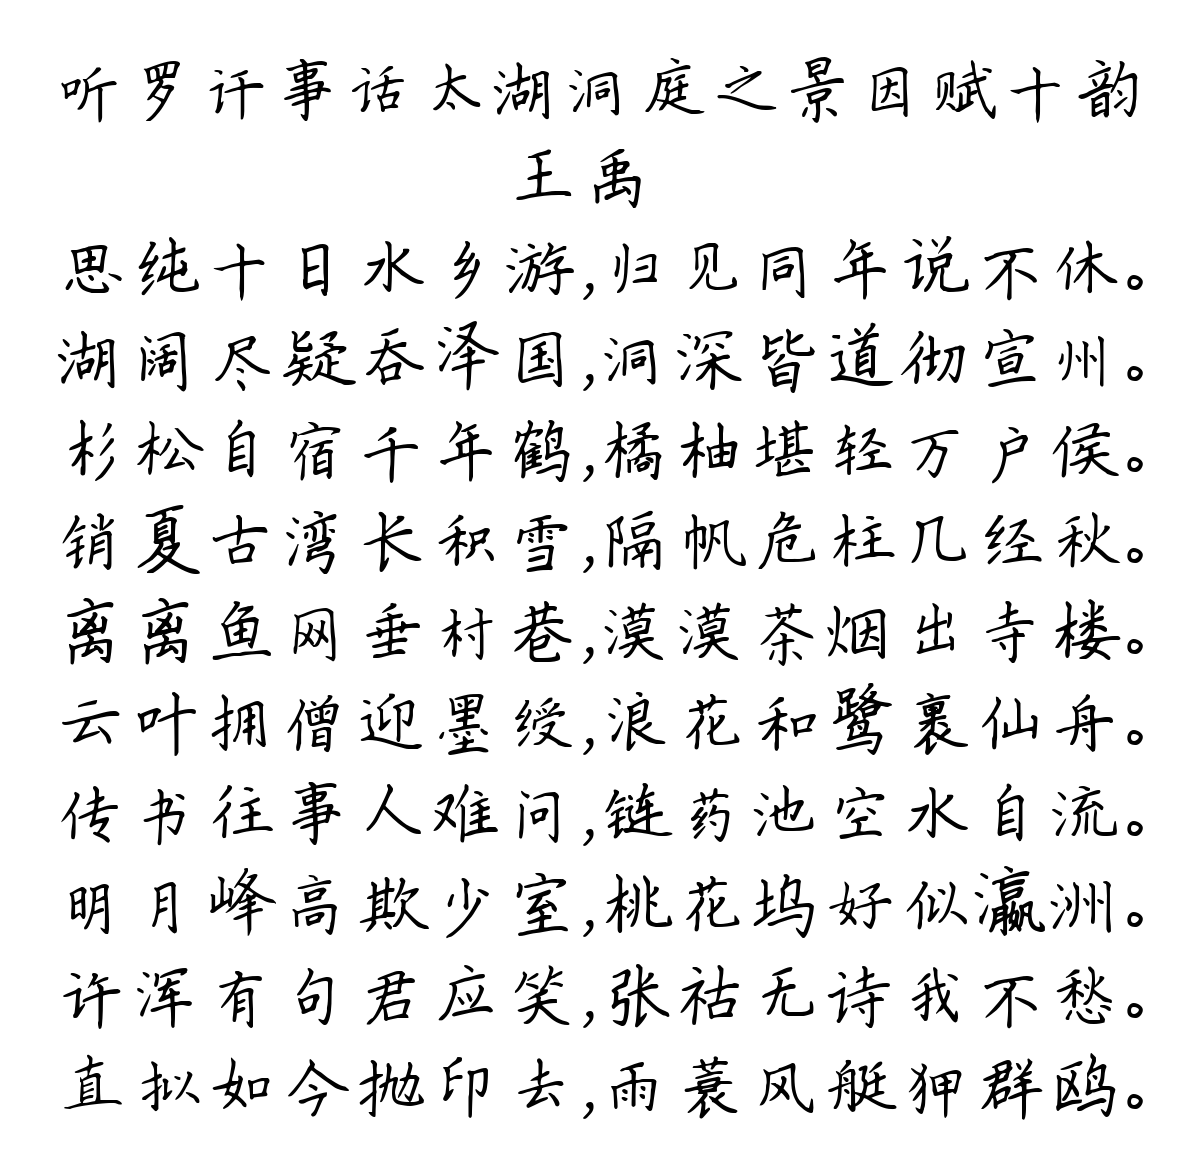 听罗讦事话太湖洞庭之景因赋十韵
王禹
思纯十日水乡游,归见同年说不休。
湖阔尽疑吞泽国,洞深皆道彻宣州。
杉松自宿千年鹤,橘柚堪轻万户侯。
销夏古湾长积雪,隔帆危柱几经秋。
离离鱼网垂村巷,漠漠茶烟出寺楼。
云叶拥僧迎墨绶,浪花和鹭裹仙舟。
传书往事人难问,链药池空水自流。
明月峰高欺少室,桃花坞好似瀛洲。
许浑有句君应笑,张祜无诗我不愁。
直拟如今抛印去,雨蓑风艇狎群鸥。